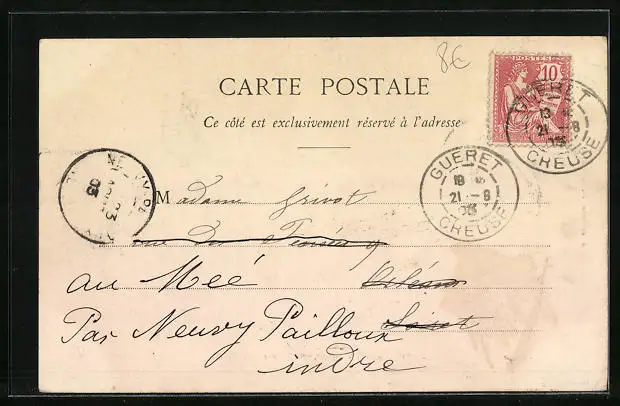 8€
CARTE POSTALE
POSTES
10
Ce côté est exclusivement réservé à l'adresse
GUERET
21 8
03
CREUSE
GUERET
18
21 8
03
CREUSE
03
Madame Grivot
rue des
au Meé Orléans
Par Neuvy Pailloux Loiret
indre